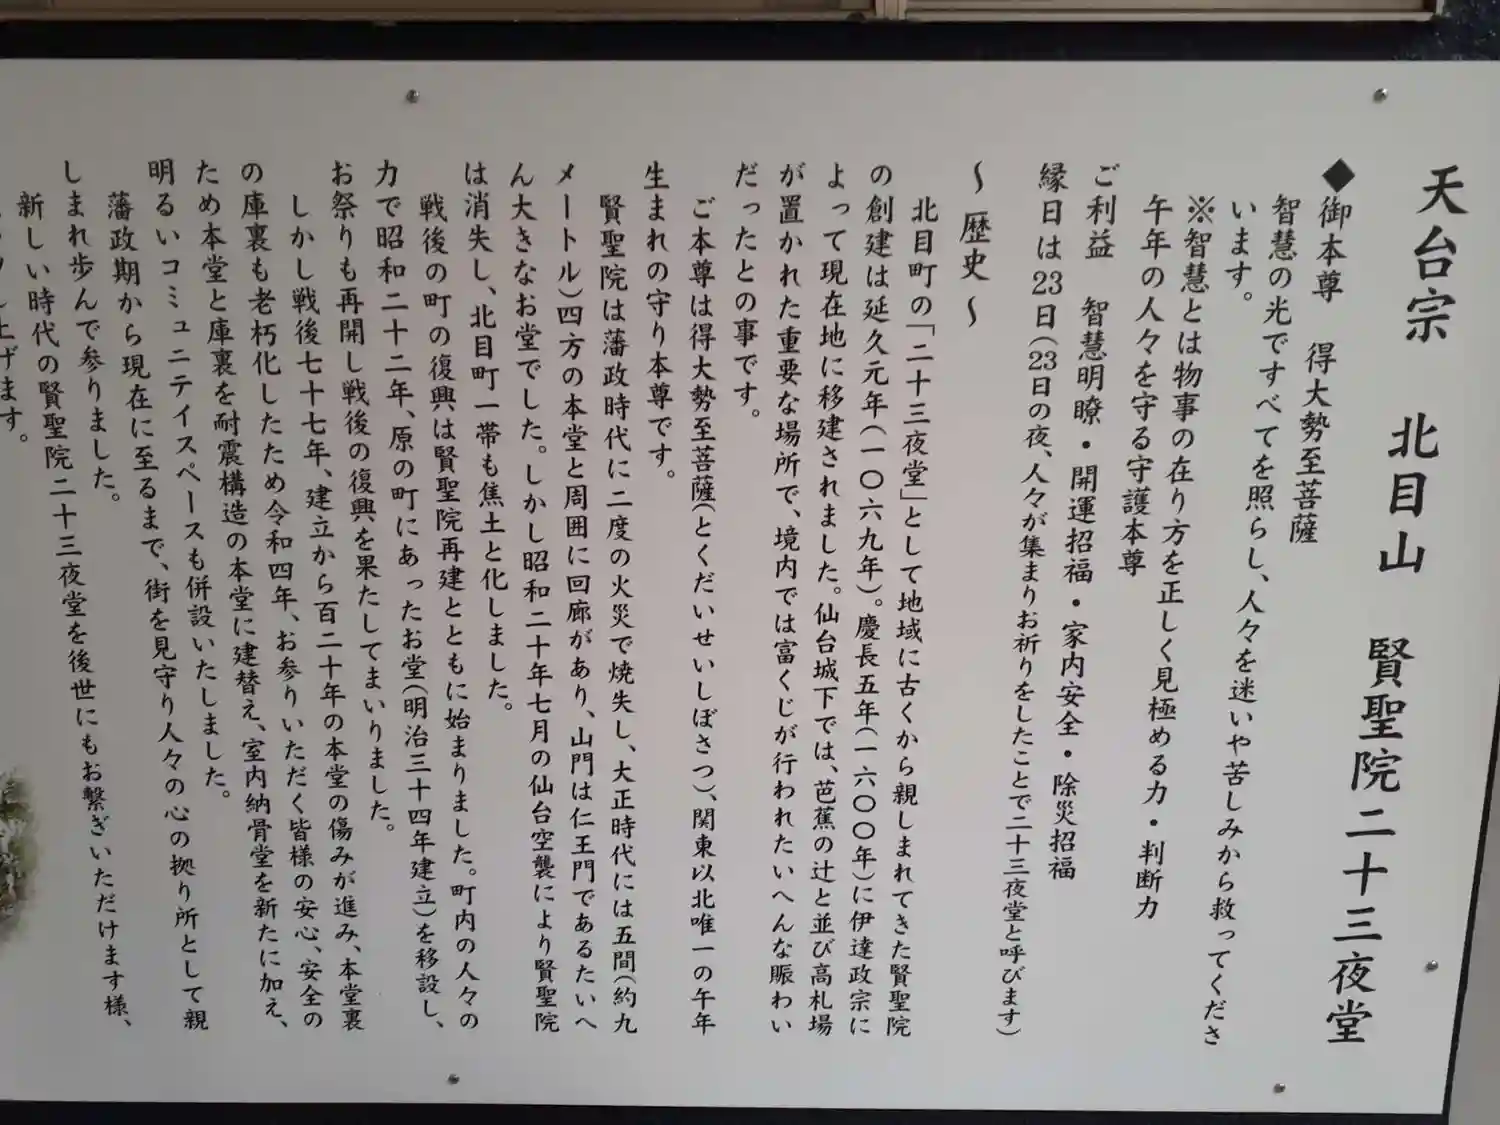 天台宗　北目山　賢聖院二十三夜堂
◆御本尊　得大勢至菩薩
智慧の光ですべてを照らし、人々を迷いや苦しみから救ってくださ
います。
※智慧とは物事の在り方を正しく見極める力・判断力
午年の人々を守る守護本尊
ご利益　智慧明瞭・開運招福・家内安全・除災招福
縁日は23日(23日の夜、人々が集まりお祈りをしたことで二十三夜堂と呼びます)
～歴史～
北目町の「二十三夜堂」として地域に古くから親しまれてきた賢聖院
の創建は延久元年(一〇六九年)。慶長五年(一六〇〇年)に伊達政宗に
よって現在地に移建されました。仙台城下では、芭蕉の辻と並び高札場
が置かれた重要な場所で、境内では富くじが行われたいへんな賑わい
だったとの事です。
ご本尊は得大勢至菩薩(とくだいせいしぼさつ)、関東以北唯一の午年
生まれの守り本尊です。
賢聖院は藩政時代に二度の火災で焼失し、大正時代には五間(約九
メートル)四方の本堂と周囲に回廊があり、山門は仁王門であるたいへ
ん大きなお堂でした。しかし昭和二十年七月の仙台空襲により賢聖院
は消失し、北目町一帯も焦土と化しました。
戦後の町の復興は賢聖院再建とともに始まりました。町内の人々の
力で昭和二十二年、原の町にあったお堂(明治三十四年建立)を移設し、
お祭りも再開し戦後の復興を果たしてまいりました。
しかし戦後七十七年、建立から百二十年の本堂の傷みが進み、本堂裏
の庫裏も老朽化したため令和四年、お参りいただく皆様の安心、安全の
ため本堂と庫裏を耐震構造の本堂に建替え、室内納骨堂を新たに加え、
明るいコミュニテイスペースも併設いたしました。
藩政期から現在に至るまで、街を見守り人々の心の拠り所として親
しまれ歩んで参りました。
新しい時代の賢聖院二十三夜堂を後世にもお繋ぎいただけます様、
上げます。